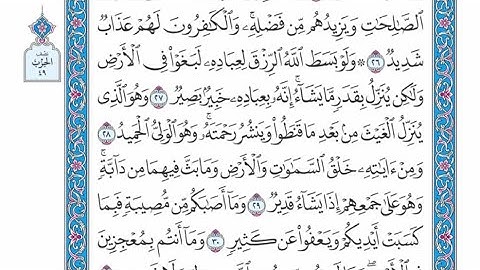 نصف
الحزب
٤٩
الصَّٰلِحَٰتِ وَيَزِيدُهُم مِّن فَضْلِهِۦۚ وَٱلْكَٰفِرُونَ لَهُمْ عَذَابٌ
شَدِيدٌ ٢٦ ۞ وَلَوْ بَسَطَ ٱللَّهُ ٱلرِّزْقَ لِعِبَادِهِۦ لَبَغَوْا۟ فِى ٱلْأَرْضِ
وَلَٰكِن يُنَزِّلُ بِقَدَرٍ مَّا يَشَآءُۚ إِنَّهُۥ بِعِبَادِهِۦ خَبِيرٌۢ بَصِيرٌ ٢٧ وَهُوَ ٱلَّذِى
يُنَزِّلُ ٱلْغَيْثَ مِنۢ بَعْدِ مَا قَنَطُوا۟ وَيَنشُرُ رَحْمَتَهُۥۚ وَهُوَ ٱلْوَلِىُّ ٱلْحَمِيدُ ٢٨
وَمِنْ ءَايَٰتِهِۦ خَلْقُ ٱلسَّمَٰوَٰتِ وَٱلْأَرْضِ وَمَا بَثَّ فِيهِمَا مِن دَآبَّةٍۚ
وَهُوَ عَلَىٰ جَمْعِهِمْ إِذَا يَشَآءُ قَدِيرٌ ٢٩ وَمَآ أَصَٰبَكُم مِّن مُّصِيبَةٍ فَبِمَا
كَسَبَتْ أَيْدِيكُمْ وَيَعْفُوا۟ عَن كَثِيرٍ ٣٠ وَمَآ أَنتُم بِمُعْجِزِينَ